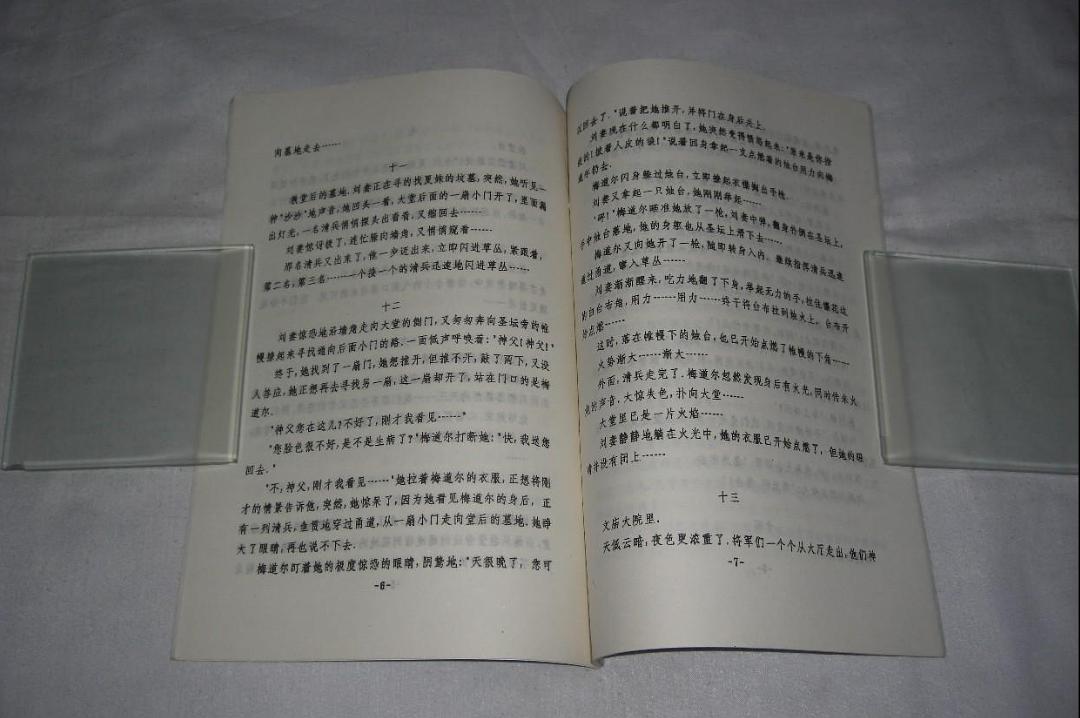 向墓地走去······
十一
教堂后的墓地。刘妻正在寻的找夏妹的坟墓，突然，她听见一
种“沙沙”地声音，她回头一看，大堂后面的一扇小门开了，里面漏
出灯光，一名清兵悄悄探头出看看，又缩回去······
刘妻惊讶极了，连忙躲向墙角，又悄悄窥看······
那名清兵又出来了，他一步迈出来，立即闪进草丛，紧跟着，
第二名，第三名······一个接一个的清兵迅速地闪进草丛······
十二
刘妻惊恐地沿墙角走向大堂的侧门，又匆匆奔向圣坛旁的帷
幔撩起来寻找通向后面小门的路。一面低声呼唤着：“神父！神父！”
终于，她找到了一扇门，她想推开，但推不开，敲了两下，又没
人答应，她正想再去寻找另一扇，这一扇却开了，站在门口的是梅
道尔。
“神父您在这儿？不好了，刚才我看见······”
“您脸色很不好，是不是生病了？”梅道尔打断她：“快，我送您
回去。”
“不，神父，刚才我看见······”她拉着梅道尔的衣服，正想将刚
才的情景告诉他，突然，她惊呆了，因为她看见梅道尔的身后，正
有一列清兵，鱼贯地穿过甬道，从一扇小门走向堂后的墓地。她睁
大了眼睛，再也说不下去。
梅道尔盯着她的极度惊恐的眼睛，阴鸷地：“天很晚了，您可
-6-
以回去了。”说着把她推开，并将门在身后关上。
刘妻现在什么都明白了，她突然变得愤怒起来：“原来是你搞
披着人皮的狼！”说着回身拿把一支点燃着的烛台用力向梅
道尔扔去。
梅道尔闪身躲过烛台，立即撩起衣襟掏出手枪。
刘妻又拿起一只烛台，她刚刚举起······
“砰！”梅道尔瞄准她放了一枪，刘妻中弹，翻身扑倒在圣坛上，
手中烛台落地，他的身躯也从圣坛上滑下去······
梅道尔又向她开了一枪，随即转身入内，继续指挥清兵迅速
通过甬道，窜入草丛。
刘妻渐渐醒来，吃力地翻了下身，举起无力的手，拉住镶花边
的白台布角，用力······用力······终于将台布拉到烛火上，台布开
始点燃······
这时，落在帷幔下的烛台，也已开始点燃了帷幔的下角······
火势渐大······渐大······
外面，清兵走完了。梅道尔忽然发现身后有火光，同时传来火
的声音，大惊失色，扑向大堂······
大堂里已是一片火焰······
刘妻静静地躺在火光中，她的衣服已开始点燃了，但她的眼
睛并没有闭上······
十三
文庙大院里。
天低云暗，夜色更浓重了。将军们一个个从大厅走出，他们神
-7-